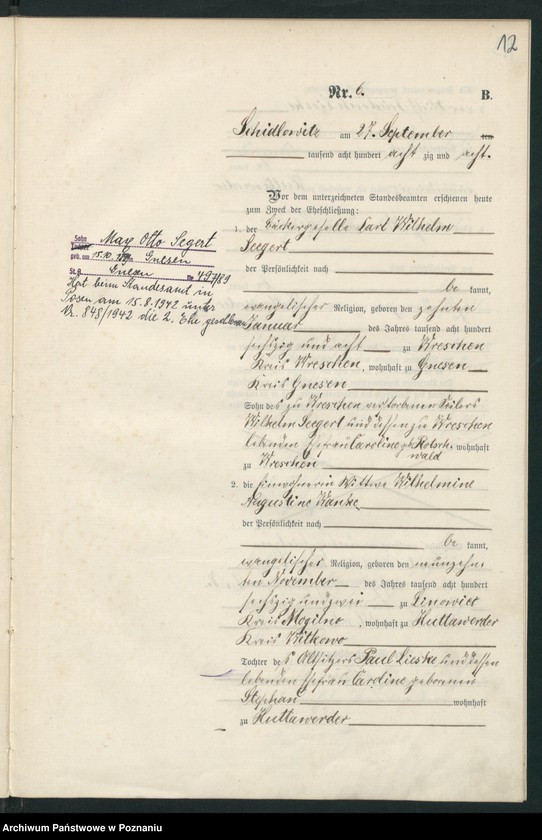 12
Nr. 6. B.
Schidlowitz am 27. September ten
tausend acht hundert acht zig und acht.
Vor dem unterzeichneten Standesbeamten erschienen heute
zum Zweck der Eheschließung:
1. der Bäckergeselle Carl Wilhelm
Seegert
der Persönlichkeit nach
be kannt,
evangelischer Religion, geboren den zehnten
Januar des Jahres tausend acht hundert
sechszig und acht zu Wreschen
Kreis Wreschen, wohnhaft zu Gnesen
Kreis Gnesen
Sohn des zu Wreschen verstorbenen
Wilhelm Seegert und dessen zu Wreschen
lebenden Ehefrau Caroline geb. Rotsch-
wald wohnhaft
zu Wreschen
2. die Einwohnerin Wittwe Wilhelmine
Augustine Wanke
der Persönlichkeit nach
be kannt,
evangelischer Religion, geboren den neunzehn
ten November des Jahres tausend acht hundert
sechszig und zwei zu Linowiec
Kreis Mogilno, wohnhaft zu Huttawerder
Kreis Witkowo
Tochter des Altsitzers Paul Lieske und dessen
lebenden Ehefrau Caroline geborenen
Stephan wohnhaft
zu Huttawerder
Sohn
Tochter Max Otto Segert
geb. am 15.10. Gnesen
St. A. Gnesen No 497/89
Hat beim Standesamt in
Posen am 15.8.1942 unter
Nr. 848/1942 die 2. Ehe geschlossen
Archiwum Państwowe w Poznaniu